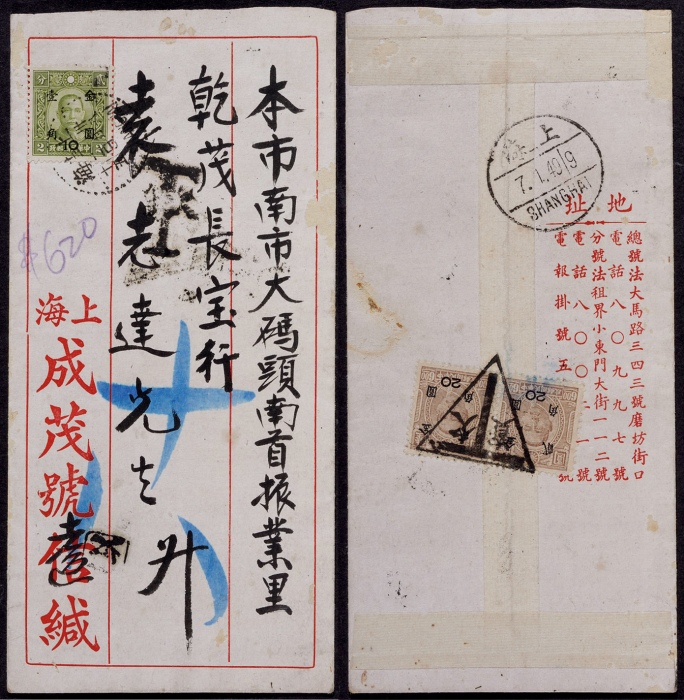 本市南市大碼頭南首振業里
乾茂長宝行
袁志達先生 升
上海
成茂號 缄
壹 金
角 圓
10
2 2
$620
上海
7.1.40 9
SHANGHAI
地址
總號法大馬路三四三號磨坊街口
電話八〇九九七號
分號法租界小東門大街一一二號
電話八〇〇二一號
電報掛號五
圓 20 角
圓 20 角
金 貳
欠資
T